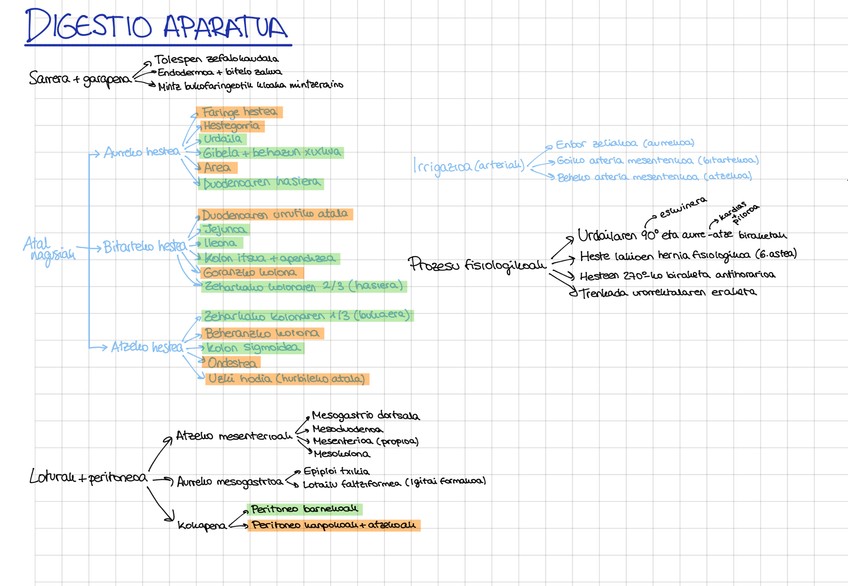 DIGESTIO APARATUA
Sarrera + garapena
Tolespen zefalokaudala
Endodermoa + bitelo zakua
Mintz bukofaringeotik kloaka mintzeraino
Atal nagusiak
Aurreko hestea
Faringe hestea
Hestegorria
Urdaila
Gibela + behazun xixkua
Area
Duodenoaren hasiera
Bitarteko hestea
Duodenoaren urrutiko atala
Jejunoa
Ileona
Kolon itsua + apendizea
Goranzko kolona
Zeharkako kolonaren 2/3 (hasiera)
Atzeko hestea
Zeharkako kolonaren 1/3 (bukaera)
Beheranzko kolona
Kolon sigmoidea
Ondestea
Uzki hodia (hurbileko atala)
Irrigazioa (arteriak)
Enbor zeliakoa (aurrekoa)
Goiko arteria mesenterikoa (bitartekoa)
Beheko arteria mesenterikoa (atzekoa)
Prozesu fisiologikoak
eskuinera
kardias
piloroa
Urdailaren 90º eta aurre-atze biraketak
Heste lakioen hernia fisiologikoa (6. astea)
Hesteen 270º-ko biraketa antihorarioa
Trenkada urorrektalaren eraketa
Loturak + peritoneoa
Atzeko mesenterioak
Mesogastrio dortsala
Mesoduodenoa
Mesenterioa (propioa)
Mesokolona
Aurreko mesogastrioa
Epiploi txikia
Lotailu faltziformea (igitai formakoa)
Kokapena
Peritoneo barnekoak
Peritoneo kanpokoak + atzekoak